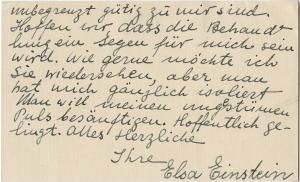 unbegrenzt gütig zu mir sind.
Hoffen wir, dass die Behand-
lung ein Segen für mich sein
wird. Wie gerne möchte ich
Sie wiedersehen, aber man
hat mich gänzlich isoliert
Man will meinen ungestümen
Puls besänftigen. Hoffentlich ge-
lingt. Alles Herzliche
Ihre
Elsa Einstein